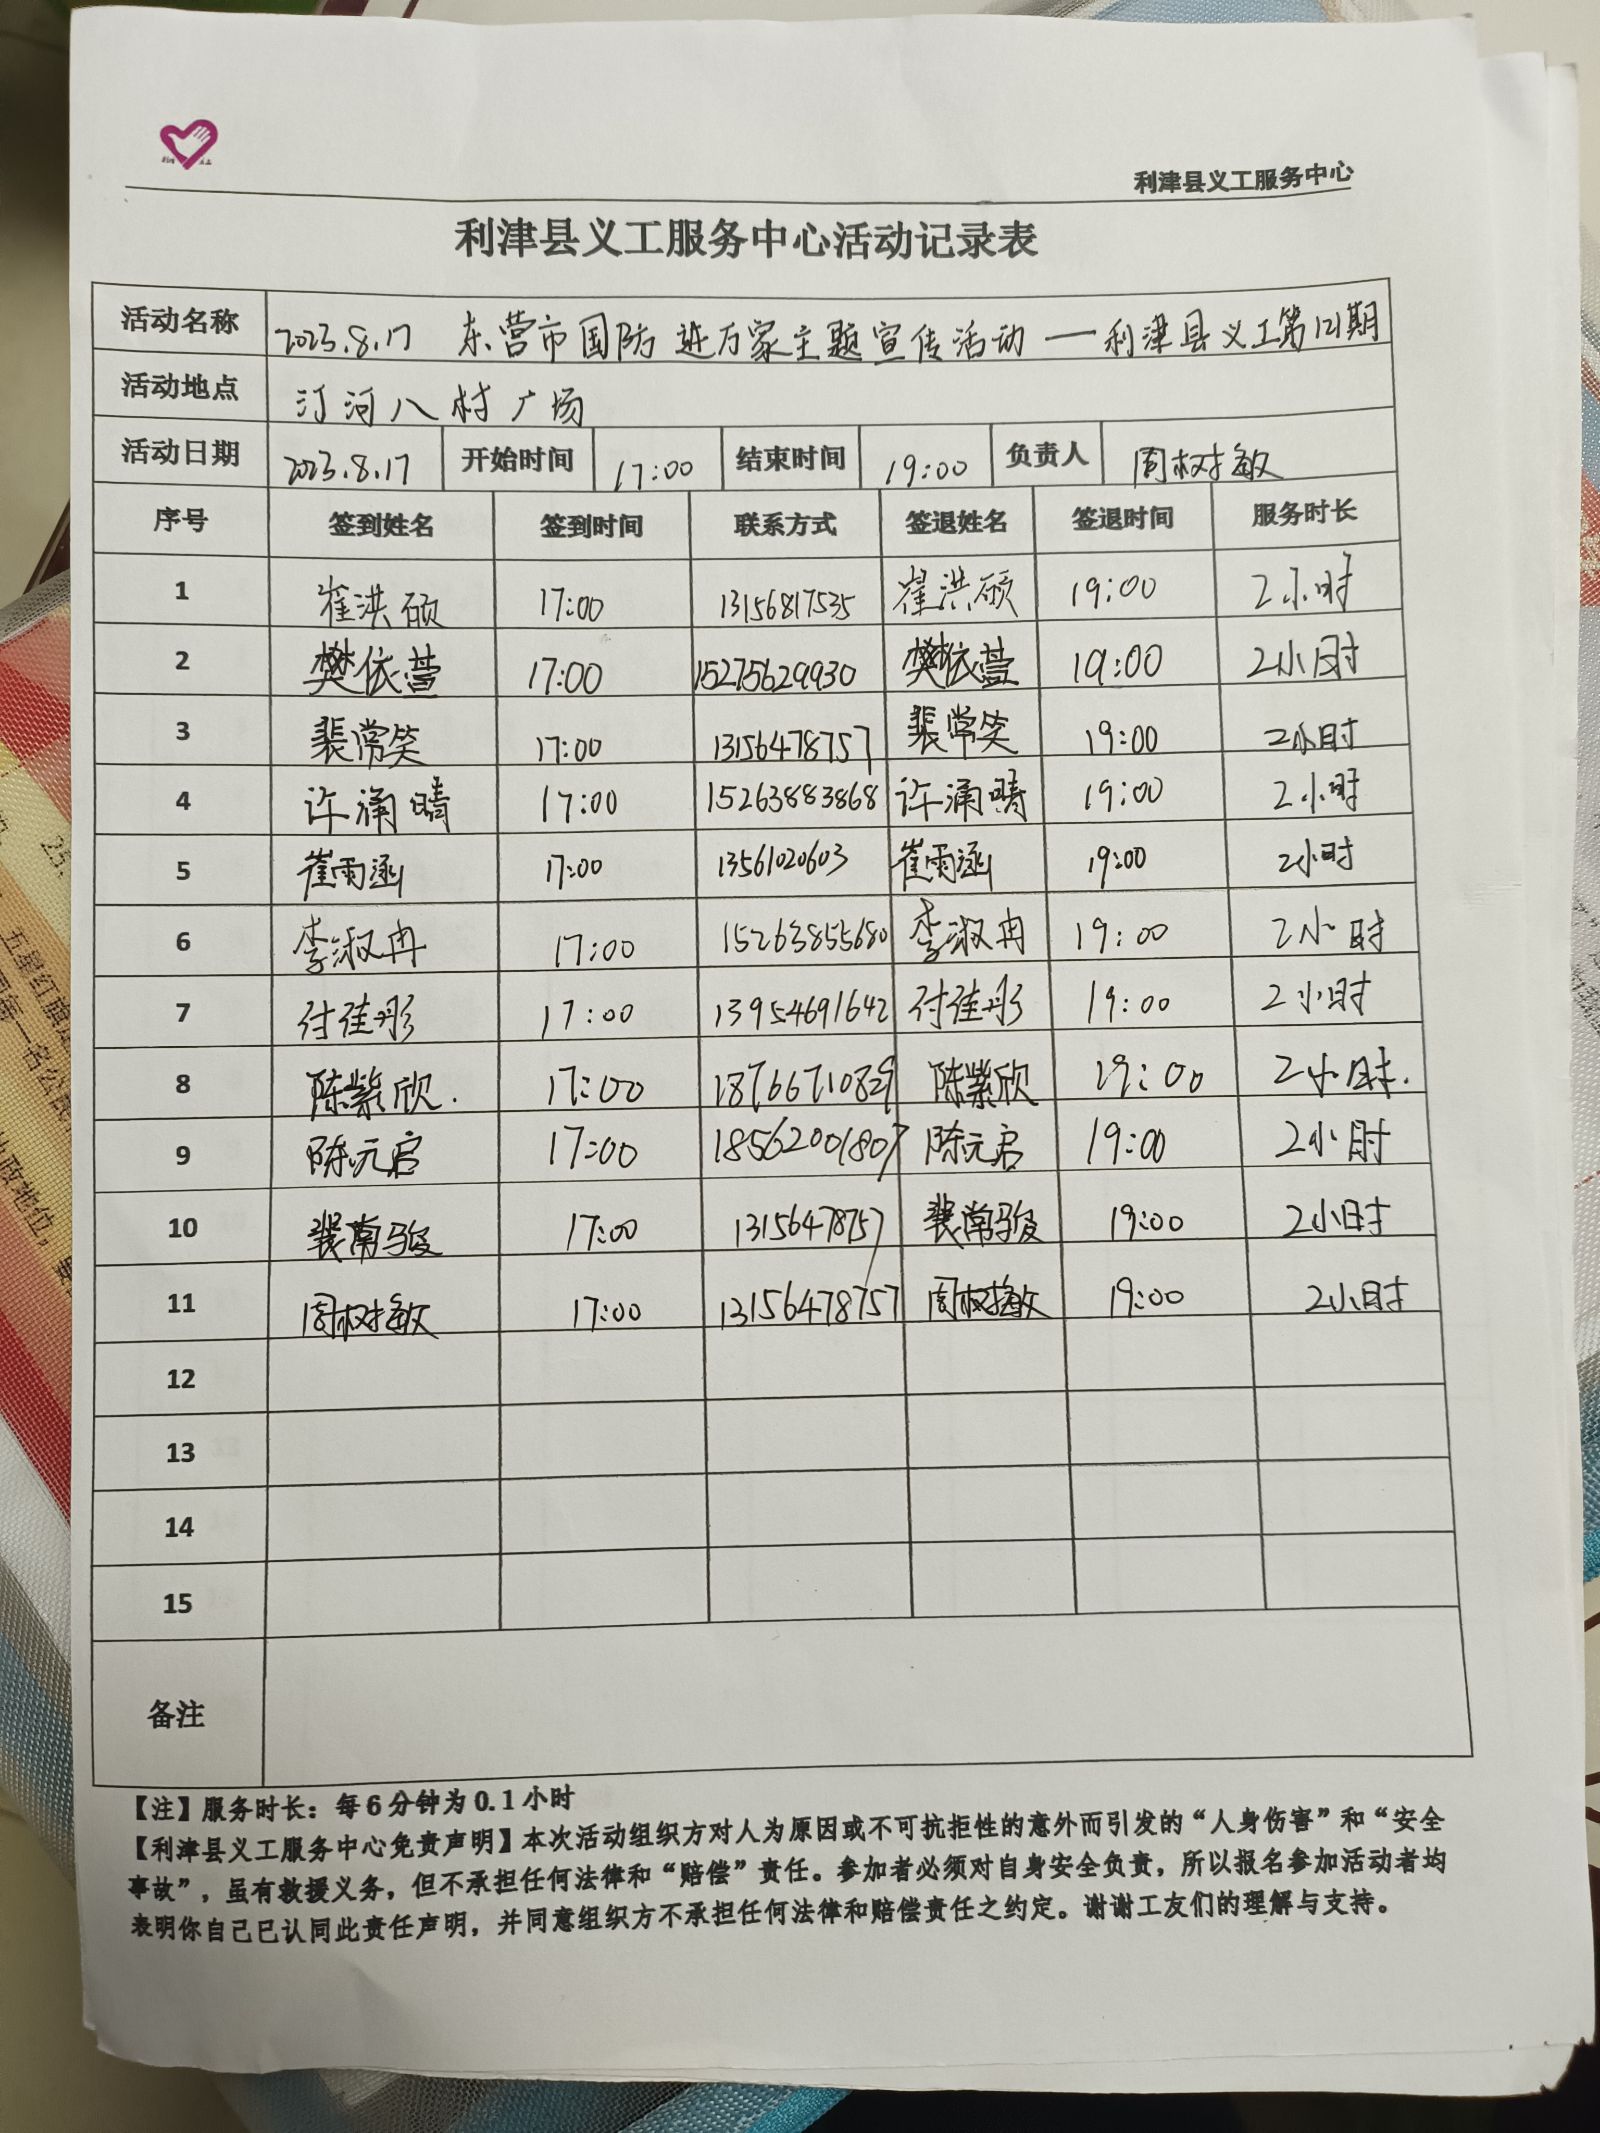 利津县义工服务中心
利津县义工服务中心活动记录表
活动名称 2023.8.17 东营市国防进万家主题宣传活动一利津县义工第121期
活动地点 汀河八村广场
活动日期 2023.8.17 开始时间 17:00 结束时间 19:00 负责人 周树敏
序号 签到姓名 签到时间 联系方式 签退姓名 签退时间 服务时长
1 崔洪硕 17:00 13156817535 崔洪硕 19:00 2小时
2 樊依萱 17:00 15275629930 樊依萱 19:00 2小时
3 裴常笑 17:00 13156478757 裴常笑 19:00 2小时
4 许涌晴 17:00 15263883868 许涌晴 19:00 2小时
5 崔雨涵 17:00 13561020603 崔雨涵 19:00 2小时
6 李淑冉 17:00 15263855680 李淑冉 19:00 2小时
7 付佳彤 17:00 13954691642 付佳彤 19:00 2小时
8 陈紫欣. 17:00 18766710829 陈紫欣 19:00 2小时.
9 陈元启 17:00 18562001807 陈元启 19:00 2小时
10 裴常骏 17:00 13156478757 裴常骏 19:00 2小时
11 周树敏 17:00 13156478757 周树敏 19:00 2小时
12
13
14
15
备注
【注】服务时长：每6分钟为0.1小时
【利津县义工服务中心免责声明】本次活动组织方对人为原因或不可抗拒性的意外而引发的“人身伤害”和“安全
事故”，虽有救援义务，但不承担任何法律和“赔偿”责任。参加者必须对自身安全负责，所以报名参加活动者均
表明你自己已认同此责任声明，并同意组织方不承担任何法律和赔偿责任之约定。谢谢工友们的理解与支持。